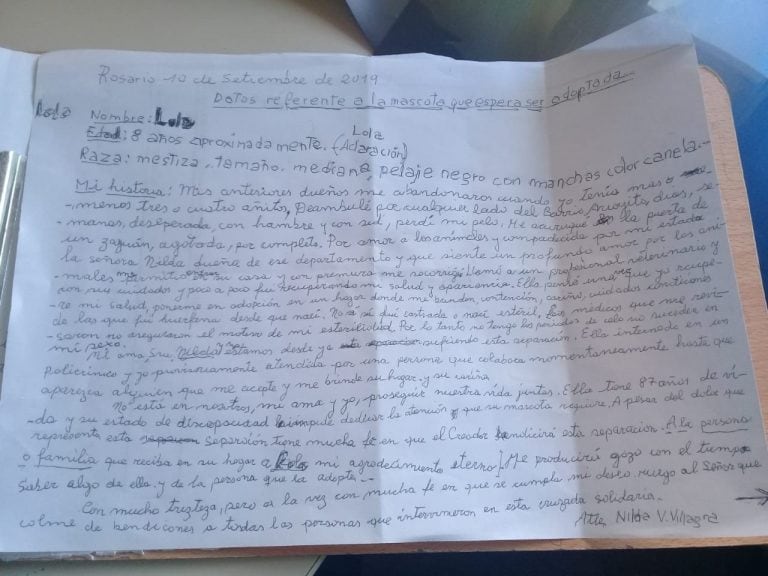 Rosario 10 de Setiembre de 2019
Datos referente a la mascota que espera ser adoptada...
Nombre: Lola
Lola
Edad: 8 años aproximadamente. (Adoración)
Raza: mestiza, tamaño, mediana, pelaje negro con manchas color canela.-
Mi historia: Mis anteriores dueños me abandonaron cuando yo tenía mas o
-menos tres o cuatro añitos, Deambulé por cualquier lado del Barrio, Arroyito, días, se-
-manas, desesperada, con hambre y con sed, perdí mi pelo. Me acurruqué en la puerta de
un zaguán, agotada, por completo. Por amor a los animales y compadecida por mi estado
la señora Nilda dueña de ese departamento y que siente un profundo amor por los ani-
-males me permitió su casa y con premura me socorrió. Llamó a un profesional veterinario y
con sus cuidados y poco a poco fui recuperando mi salud y apariencia. Ella pensó una vez que yo recupe-
-re mi salud, ponerme en adopción en un hogar donde me brinden, contención, cariño, cuidados
de las que fui huérfana desde que nací. No sé si fui castrada o nací estéril, los médicos que me revi-
-saron no aseguraron el motivo de mi esterilidad. Por lo tanto no tengo los períodos de celo que suceden en
mi sexo.
Mi ama, Sra, Nilda y yo estamos desde ya sufriendo esta separación. Ella internada en un
Policlínico y yo provisoriamente atendida por una persona que colabora momentaneamente hasta que
aparezca alguien que me acepte y me brinde su hogar y su cariño.
No está en nosotras, mi ama y yo, proseguir nuestra vida juntas. Ella tiene 87 años de vi-
-da y su estado de discapacidad impide dedicar la atención que su mascota requiere. A pesar del dolor que
representa esta separsión tiene mucha fé en que el Creador bendicirá esta separacion. A la persona
o familia que reciba en su hogar a Lola mi agradecimiento eterno! Me produciría gozo con el tiempo
saber algo de ella y de la persona que la adopte.-
Con mucho tristeza, pero a la vez con mucha fe en que se cumpla mi deseo ruego al Señor que
colme de bendiciones a todas las personas que intervinieron en esta cruzada solidaria.
Atte. Nilda V. Villagra